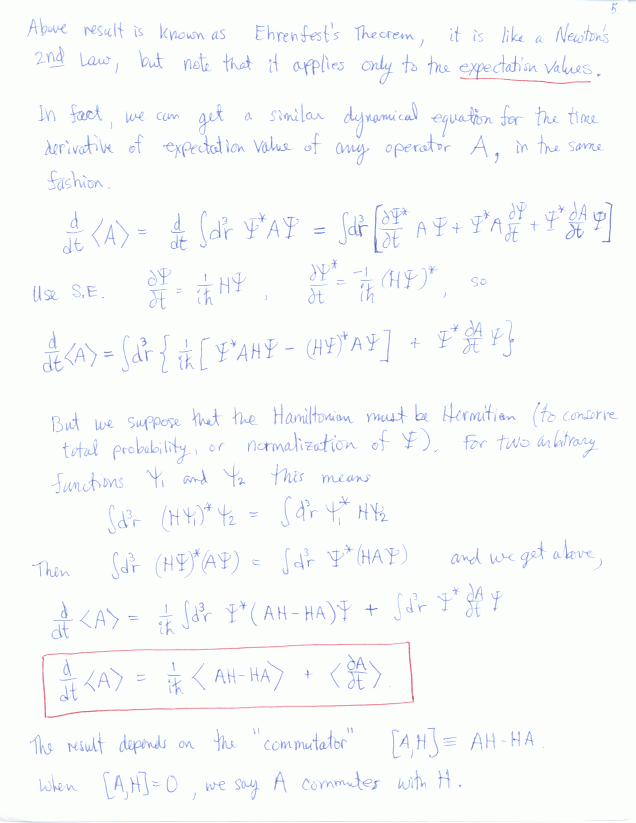 5
Above result is known as Ehrenfest's Theorem, it is like a Newton's
2nd Law, but note that it applies only to the expectation values.
In fact, we can get a similar dynamical equation for the time
derivative of expectation value of any operator A, in the same
fashion.
d/dt <A> = d/dt ∫d³r Ψ*AΨ = ∫d³r [∂Ψ*/∂t AΨ + Ψ*A ∂Ψ/∂t + Ψ* ∂A/∂t Ψ]
Use S.E. ∂Ψ/∂t = 1/iħ HΨ , ∂Ψ*/∂t = -1/iħ (HΨ)*, so
d/dt <A> = ∫d³r { 1/iħ [Ψ*AHΨ - (HΨ)*AΨ] + Ψ* ∂A/∂t Ψ}
But we suppose that the Hamiltonian must be Hermitian (to conserve
total probability, or normalization of Ψ). For two arbitrary
functions Ψ₁ and Ψ₂ this means
∫d³r (HΨ₁)*Ψ₂ = ∫d³r Ψ₁* HΨ₂
Then ∫d³r (HΨ)*(AΨ) = ∫d³r Ψ*(HAΨ) and we get above,
d/dt <A> = 1/iħ ∫d³r Ψ*(AH-HA)Ψ + ∫d³r Ψ* ∂A/∂t Ψ
d/dt <A> = 1/iħ < AH-HA > + <∂A/∂t>
The result depends on the "commutator" [A,H] ≡ AH-HA.
When [A,H]=0, we say A commutes with H.